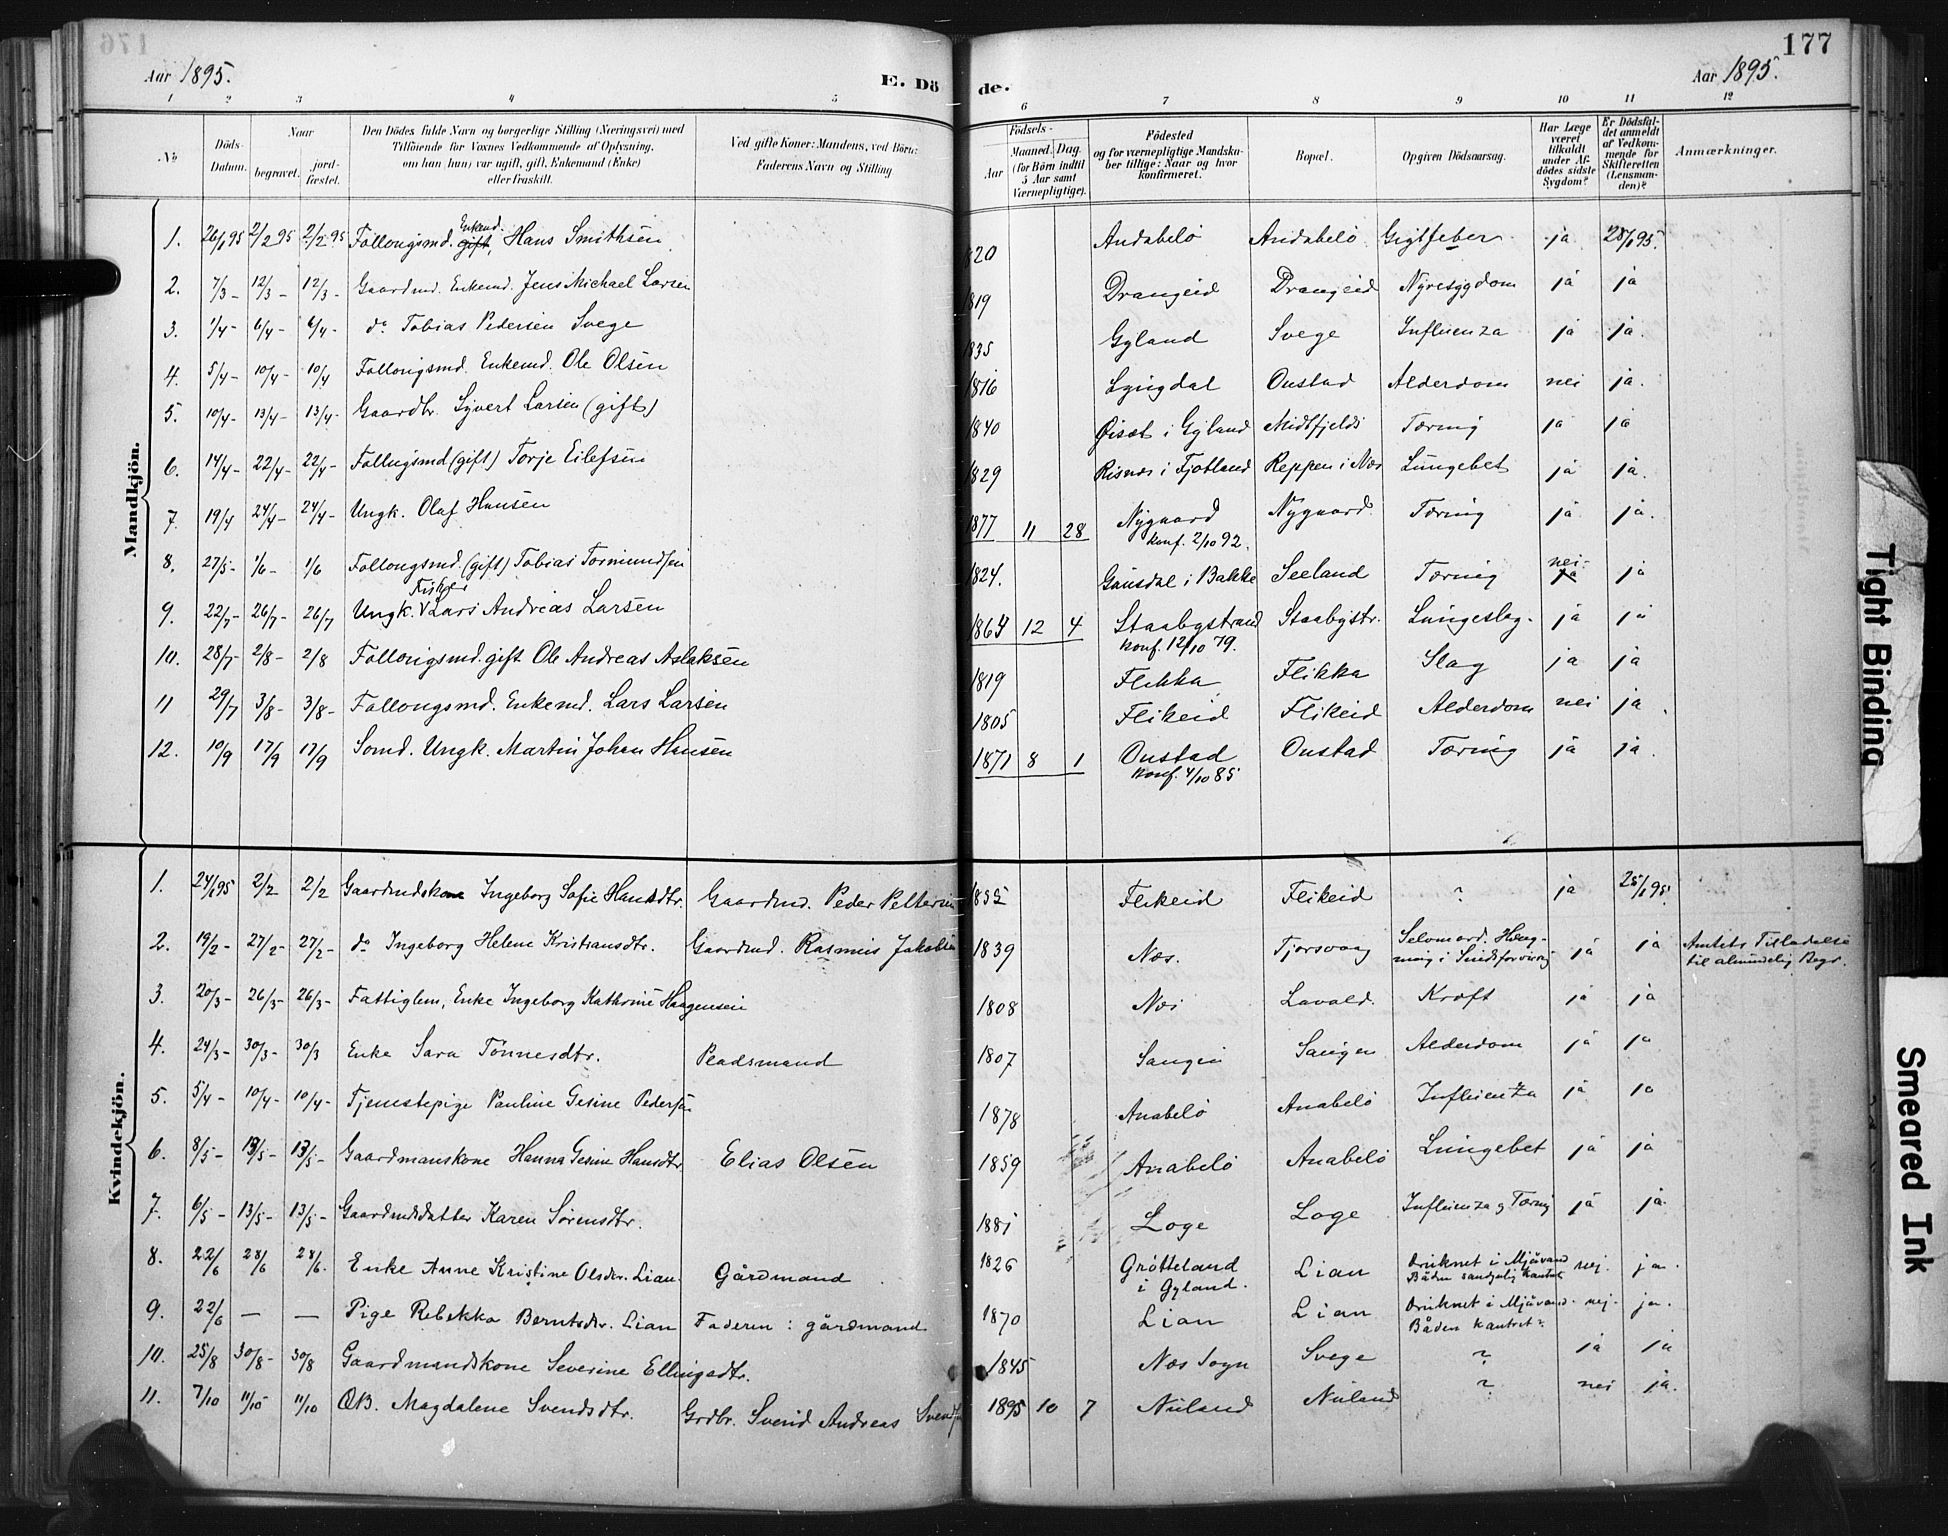 176
Aar 1895.
E. Dö
de.
Aar 1895.
177
1 2 3 4 5 6 7 8 9 10 11 12
No
Döds-Datum.
Naar
begravet.
jord-fæstet.
Den Dödes fulde Navn og borgerlige Stilling (Næringsvei) med
Tilföiende for Voxnes Vedkommende af Oplysning,
om han (hun) var ugift, gift, Enkemand (Enke)
eller fraskilt.
Ved gifte Koner: Mandens, ved Börn:
Faderens Navn og Stilling
Födsels-
Aar
Maaned. Dag.
(for Börn indtil
5 Aar samt
Værnepligtige).
Födested
og for værnepligtige Mandska-
ber tillige: Naar og hvor
konfirmeret.
Bopæl.
Opgiven Dödsaarsag.
Har Læge
været
tilkaldt
under Af-
dödes sidste
Sygdom?
Er Dödsfal-
det anmeldt
af Vedkom-
mende for
Skifteretten
(Lensman-
den)?
Anmærkninger.
Mandkjön.
1. 26/1 95 2/2 95 2/2 95 Follougsmd. gift, Enkemd. Hans Smithsen 1820 Andabelö Andabelö Gigtfeber ja 28/1 95.
2. 7/3 - 12/3 - 12/3 - Gaardmd. Enkemd. Jens Michael Larsen 1819 Drangeid Drangeid Nyresygdom ja ja
3. 1/4 - 6/4 - 6/4 - do Tobias Pedersen Svege 1835 Gyland Svege Influenza ja ja.
4. 5/4 - 10/4 - 10/4 Follougsmd. Enkemd. Ole Olsen 1816 Lyngdal Onstad Alderdom nei ja.
5. 10/4 - 13/4 - 13/4 - Gaardbr. Syvert Larsen (gift) 1840 Øisæt i Gyland Midtfjeld Tæring ja ja
6. 14/4 - 22/4 - 22/4 - Follugsmd (gift) Torje Eilefsen 1829 Risnæs i Fjotland Reppen i Næs Lungebet ja ja.
7. 19/4 24/4 - 24/4 - Ungk. Olaf Hansen 1877 11 28 Nygaard Nygaard Tæring ja ja.
konf. 2/10 92.
8. 27/5 - 1/6 - 1/6 Follougsmd. (gift) Tobias Tormundsen 1824. Gausdal i Bakke Seeland Tæring nei. ja ja
9. 22/7 - 26/7 - 26/7 Ungk. Fisker Lars Andreas Larsen 1864 12 4 Staabystrand Staabystr. Lungeslag. ja ja
konf. 12/10 79.
10. 28/7 2/8 - 2/8 Follougsmd. gift Ole Andreas Aslaksen 1819 Flikka Flikka Slag ja ja
11 29/7 3/8 - 3/8 - Follougsmd. Enkemd. Lars Larsen 1805 Flikeid Flikeid Alderdom nei ja.
12. 10/9 17/9 17/9 Somd. Ungk. Martin Johan Hansen 1871 8 1 Onstad Onstad Tæring ja ja.
konf. 4/10 85
Kvindekjön.
1. 24/1 95 2/2 2/2 Gaardmdskone Ingeborg Sofie Hansdtr. Gaardmd. Peder Pettersen 1855 Flikeid Flikeid ? ja 25/1 95.
2. 19/2 - 27/2 - 27/2 - do Ingeborg Helene Kristiansdtr. Gaardmd. Rasmus Jakobsen 1839 Næs. Tjorsvaag Selvmord. Hæng-
ning i Sindsforvirring ja ja Amtets Tilladelse
til almindelig Begr.
3. 20/3 - 26/3 - 26/3 - Fattiglem, Enke Ingeborg Kathrine Haagensen 1808 Næs Lavold. Kræft ja ja
4. 24/3 - 30/3 - 30/3 Enke Sara Tönnesdtr. Pladsmand 1807 Sangen Sangen Alderdom ja ja
5. 5/4 - 10/4 - 10/4 - Tjenestepige Pauline Gesine Pedersen 1878 Anabelö Anabelö Influenza ja ja
6. 8/5 - 13/5 - 13/5 - Gaardmanskone Hanna Gesine Hansdtr Elias Olsen 1859 Anabelö Anabelö Lungebet ja ja
7. 6/5 - 13/5 - 13/5 - Gaardmdsdatter Karen Sörensdtr. 1881 Loge Loge Influenza og Tæring ja ja.
8. 22/6 28/6 28/6. Enke Anne Kristine Olsdtr. Lian. Gårdmand 1826 Grötteland
i Gyland. Lian Druknet i Mjåvand
Båden sandsynlig kantret nej. ja.
9. 22/6 — — Pige Rebekka Berntsdtr. Lian Faderen: gårdmand 1870 Lian Lian Druknet i Mjåvand.
Båden kantret? nej. ja.
10. 25/8 30/8 - 30/8 Gaardmandskone Severine Ellingsdtr. 1845 Næs Sogn Svege ? ja ja
11. 7/10 11/10 11/10 QB. Magdalene Svendsdtr. Grdbr. Svend Andreas Svendsen 1895 10 7 Nuland Nuland ? nei ja.
Tight Binding
Smeared Ink